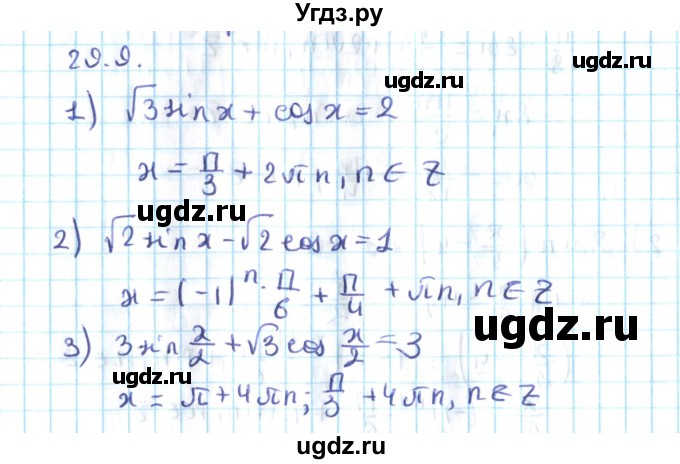 Угдз.ру
29.9.
ugdz.ru
1) √3 sin x + cos x = 2
ugdz.ru
x = π/3 + 2πn, n ∈ Z
ugdz.ru
2) √2 sin x - √2 cos x = 1
x = (-1)^n · π/6 + π/4 + πn, n ∈ Z
ugdz.ru
3) 3 sin x/2 + √3 cos x/2 = 3
ugdz.ru
x = π + 4πn; π/3 + 4πn, n ∈ Z
ugdz.ru
ugdz.ru